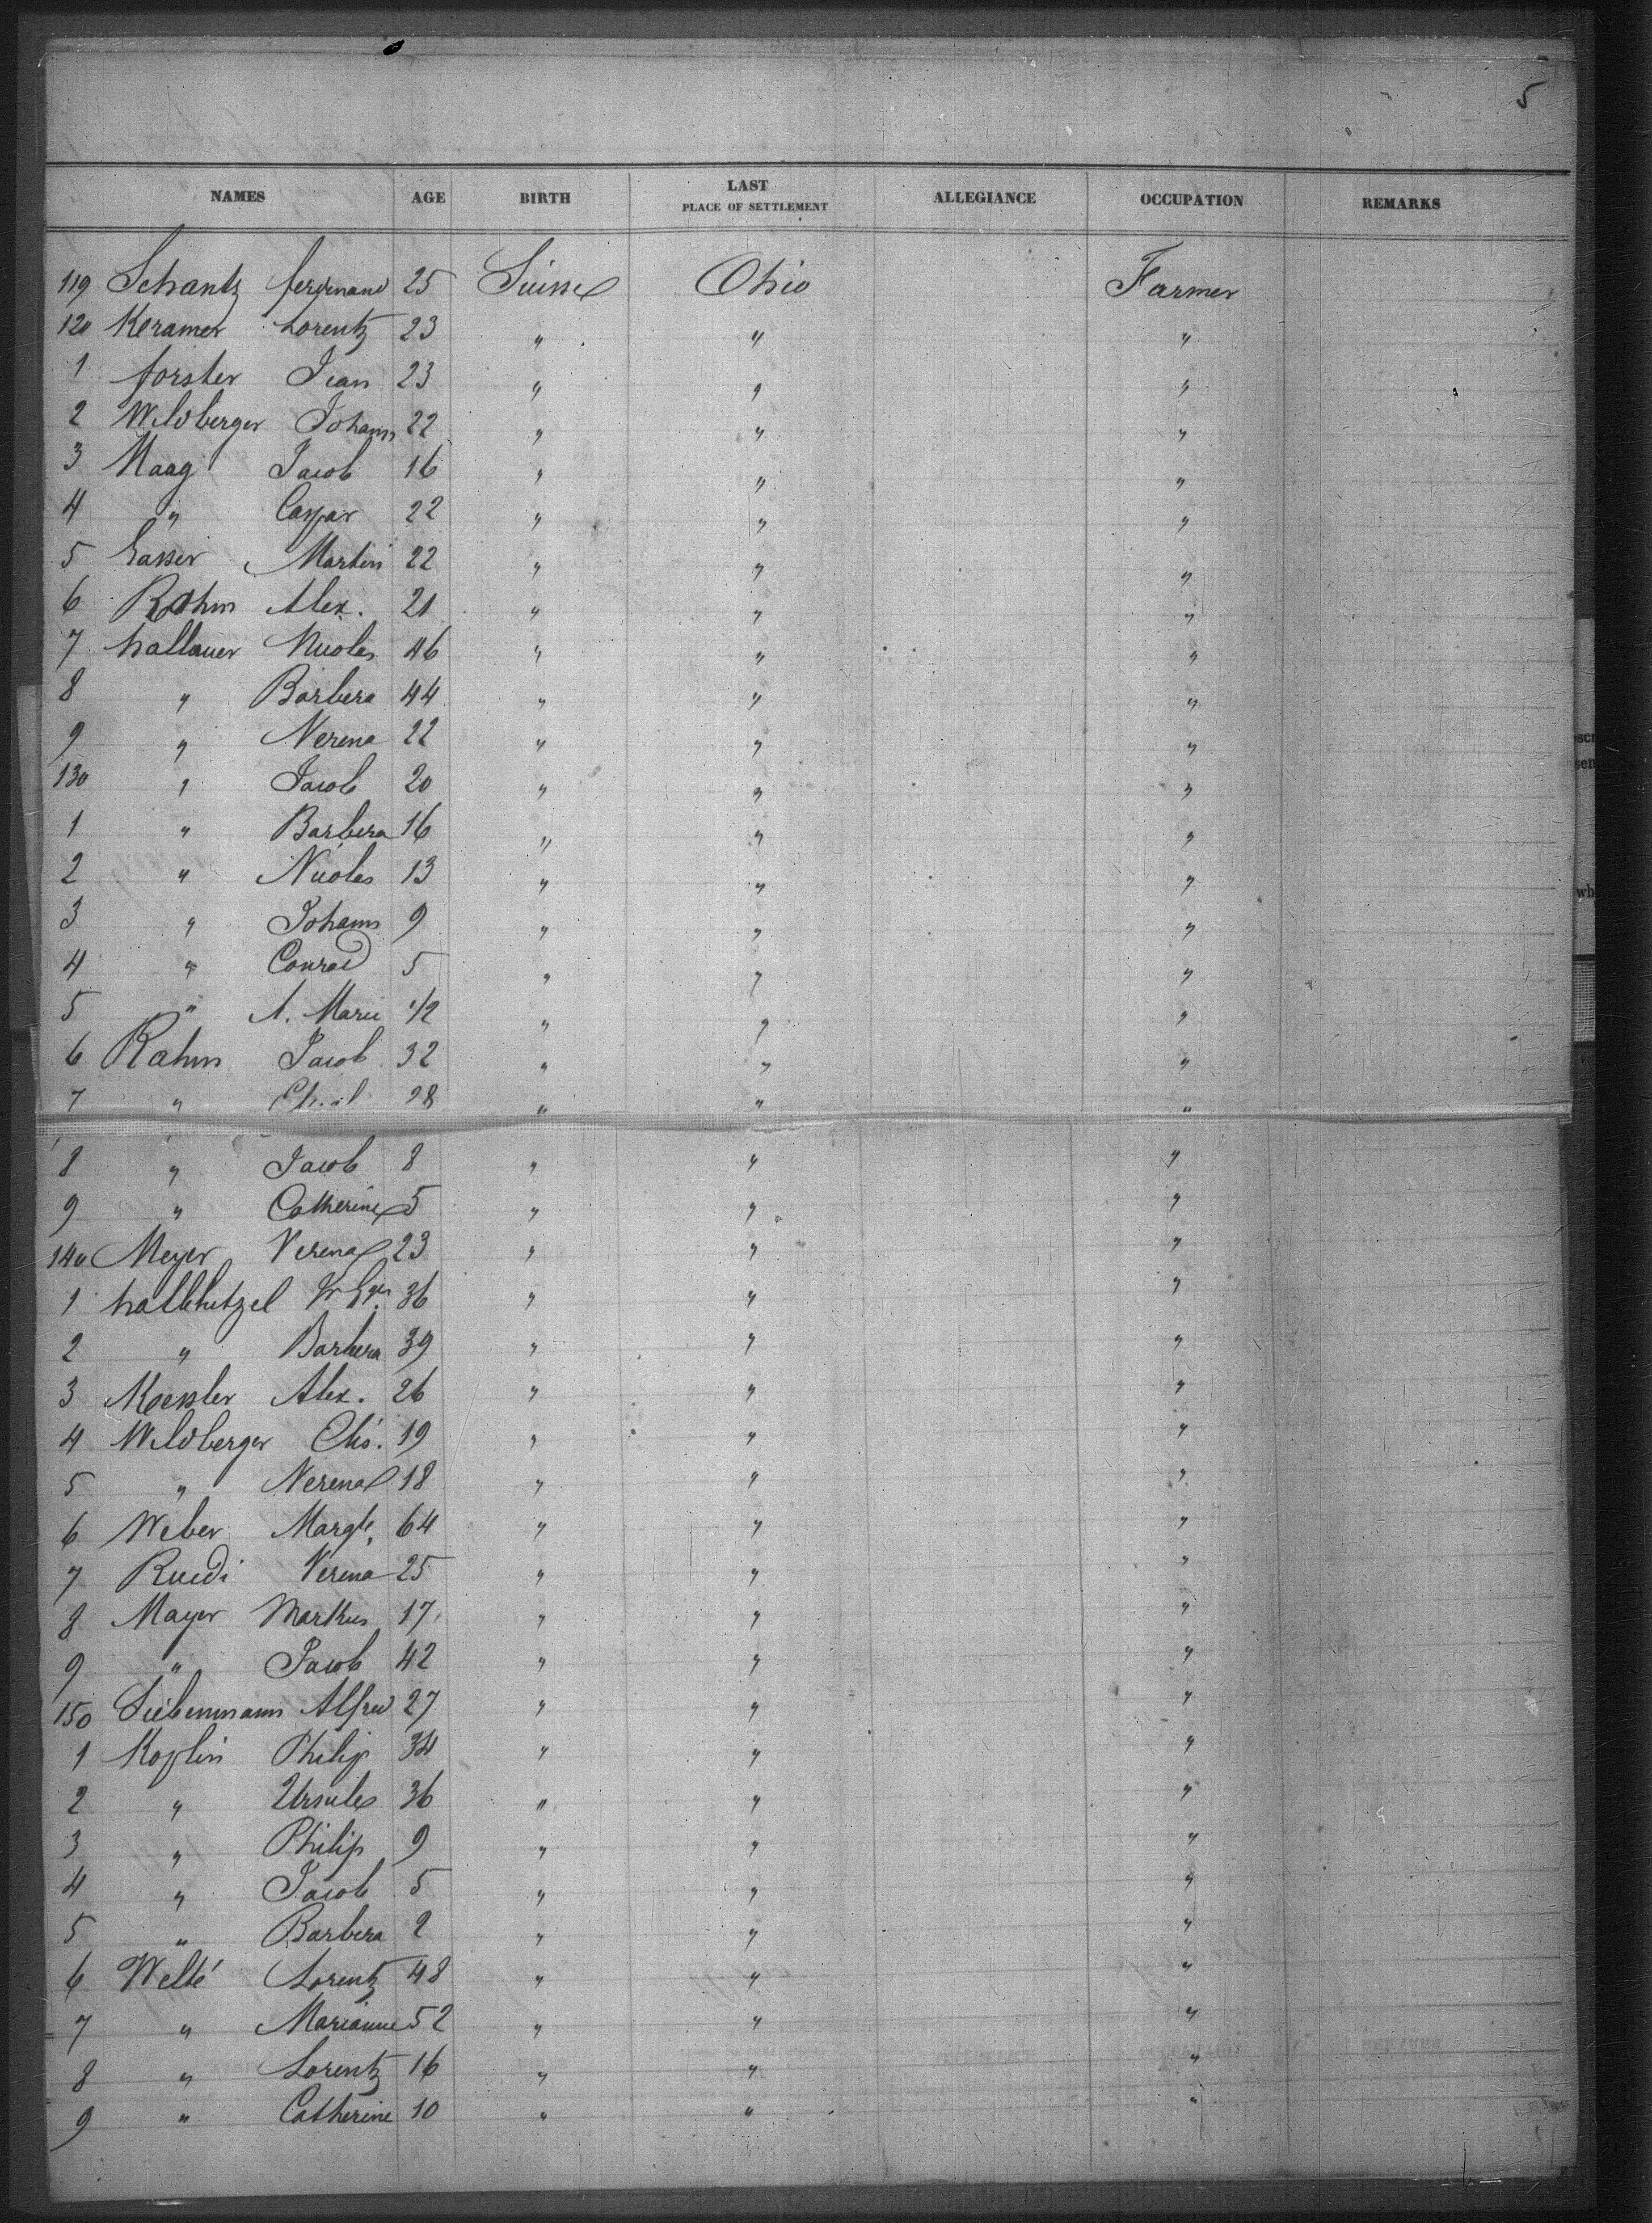 5
NAMES AGE BIRTH LAST PLACE OF SETTLEMENT ALLEGIANCE OCCUPATION REMARKS
119 Schantz ferdinand 25 Suisse Ohio Farmer
120 Keramer Lorentz 23 " " "
1 forster Jean 23 " " "
2 Wildberger Johann 22 " " "
3 Maag Jacob 16 " " "
4 " Caspar 22 " " "
5 Gasser Martin 22 " " "
6 Rahm Alex. 21 " " "
7 hallauer Nicolas 46 " " "
8 " Barbera 44 " " "
9 " Verena 22 " " "
130 " Jacob 20 " " "
1 " Barbera 16 " " "
2 " Nicolas 13 " " "
3 " Johann 9 " " "
4 " Conrad 5 " " "
5 " A. Marie 1/2 " " "
6 Rahm Jacob 32 " " "
7 " 28 " " "
8 " Jacob 8 " " "
9 " Catherine 5 " " "
140 Meyer Verena 23 " " "
1 36 " " "
2 " Barbera 39 " " "
3 Alex. 26 " " "
4 Wildberger Chs. 19 " " "
5 " Verena 18 " " "
6 Weber Margte. 64 " " "
7 Ruedi Verena 25 " " "
8 Mayer Markus 17 " " "
9 " Jacob 42 " " "
150 Siebenmann Alfred 27 " " "
1 Koplin Philip 34 " " "
2 " Ursule 36 " " "
3 " Philip 9 " " "
4 " Jacob 5 " " "
5 " Barbera 2 " " "
6 Welté Lorentz 48 " " "
7 " Marianne 52 " " "
8 " Lorentz 16 " " "
9 " Catherine 10 " " "